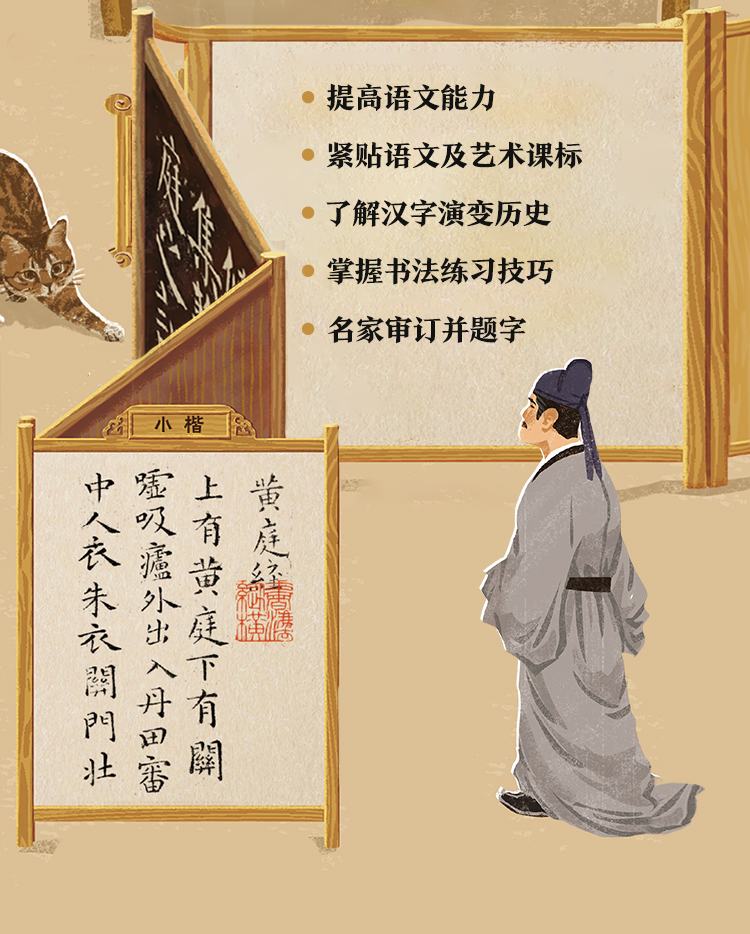 提高语文能力
紧贴语文及艺术课标
了解汉字演变历史
掌握书法练习技巧
名家审订并题字
小楷
黄庭經
上有黄庭下有關
嘘吸廬外出入丹田審
中人衣朱衣關門壯
庭